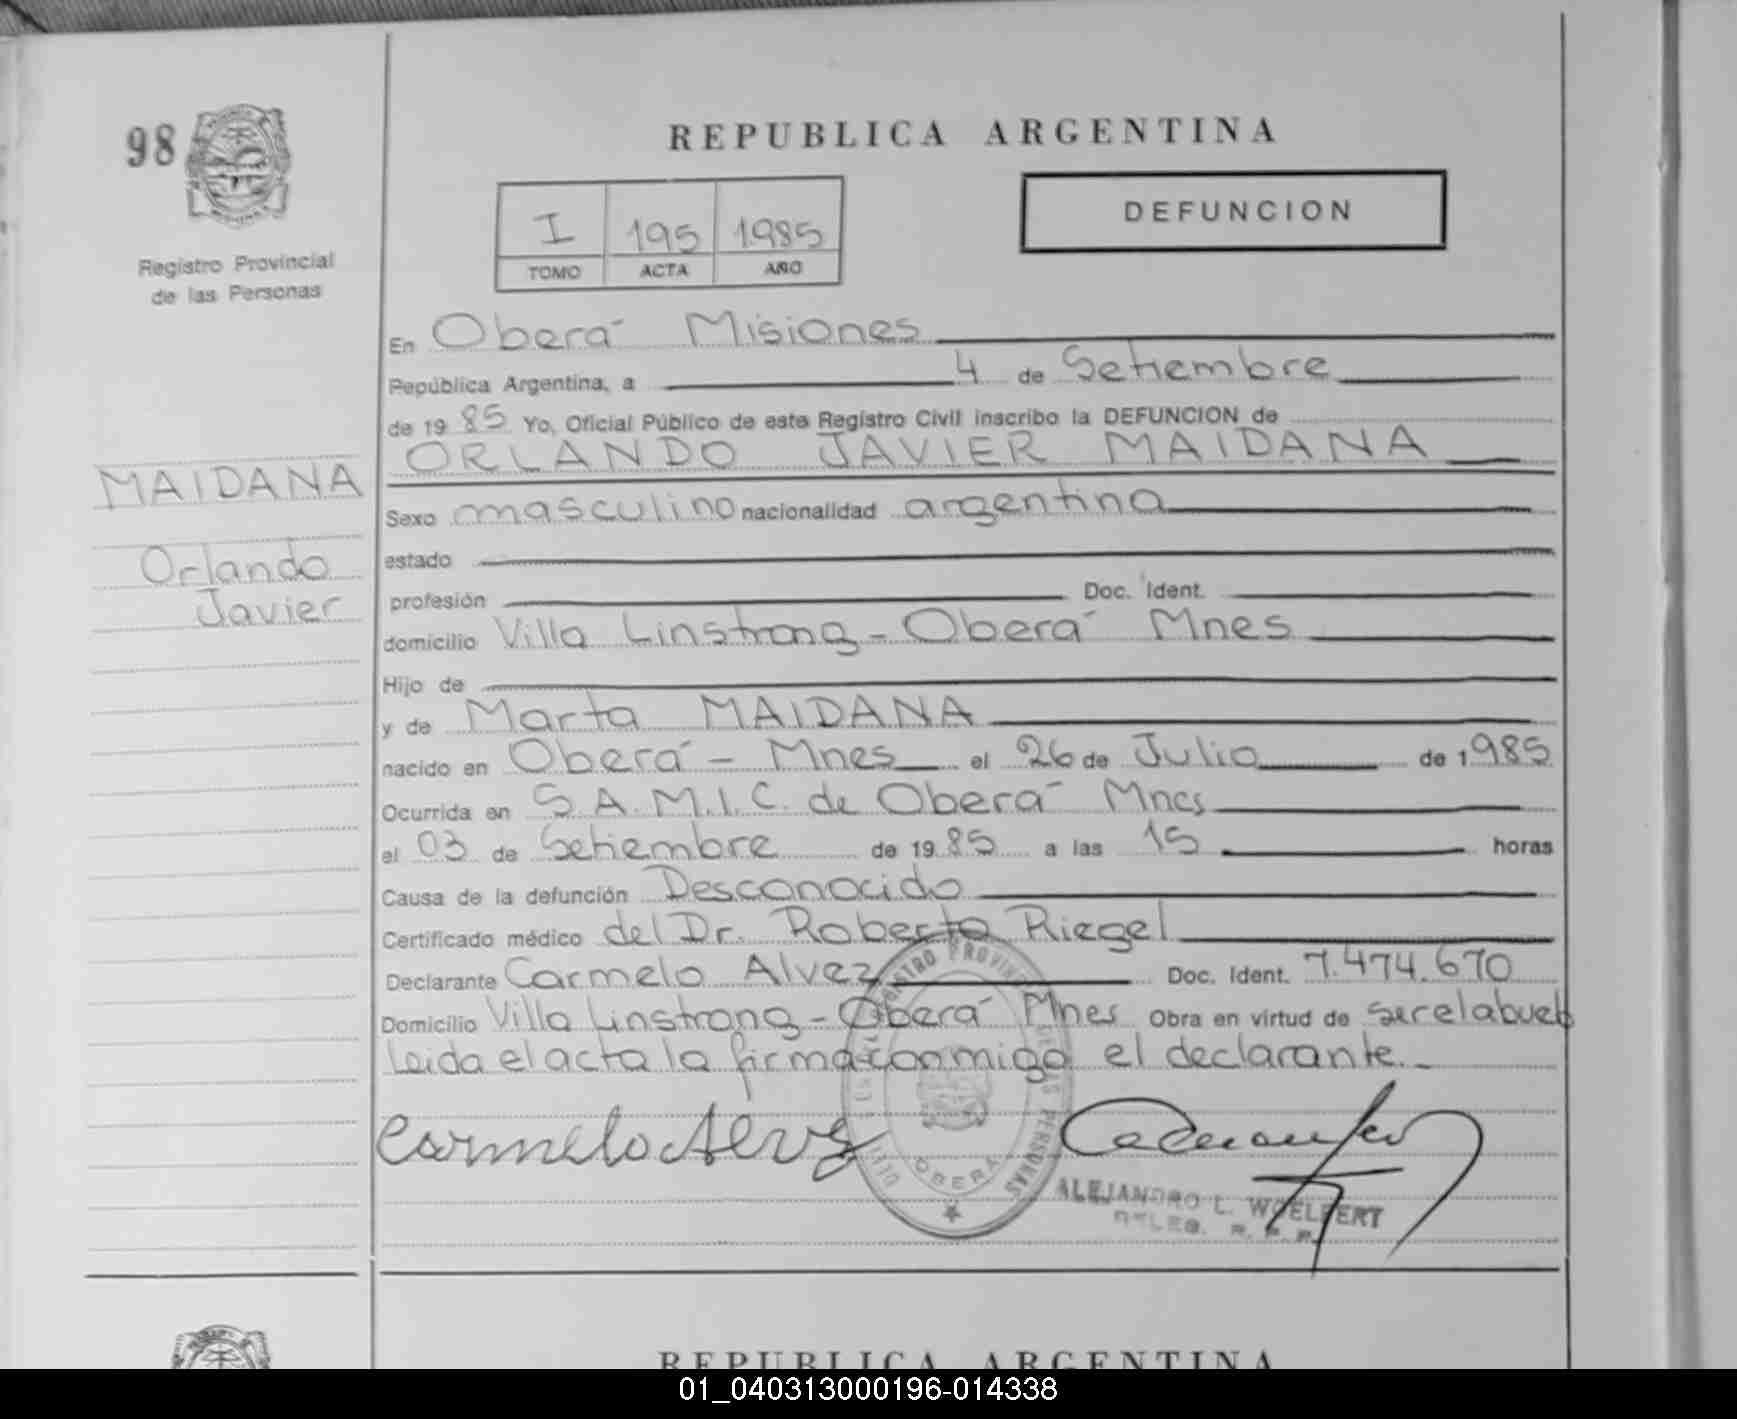 98
Registro Provincial
de las Personas
MAIDANA
Orlando
Javier
REPUBLICA ARGENTINA
I 195 1985
TOMO ACTA AÑO
DEFUNCION
En Oberá Misiones
República Argentina, a 4 de Setiembre
de 1985 Yo, Oficial Público de este Registro Civil inscribo la DEFUNCION de
ORLANDO JAVIER MAIDANA
Sexo masculino nacionalidad argentina
estado
profesión Doc. Ident.
domicilio Villa Linstrong - Oberá Mnes
Hijo de
y de Marta MAIDANA
nacido en Oberá - Mnes el 26 de Julio de 1985
Ocurrida en S.A.M.I.C. de Oberá Mnes
el 03 de Setiembre de 1985 a las 15 horas
Causa de la defunción Desconocido
Certificado médico del Dr. Roberto Riegel
Declarante Carmelo Alvez Doc. Ident. 7.474.670
Domicilio Villa Linstrong - Oberá Mnes Obra en virtud de ser el abuelo
Leida el acta la firma conmigo el declarante.-
Carmelo Alvez
OBERA
ALEJANDRO L. WOELFERT
DELEG. R. P. P.
REPUBLICA ARGENTINA
01_040313000196-014338